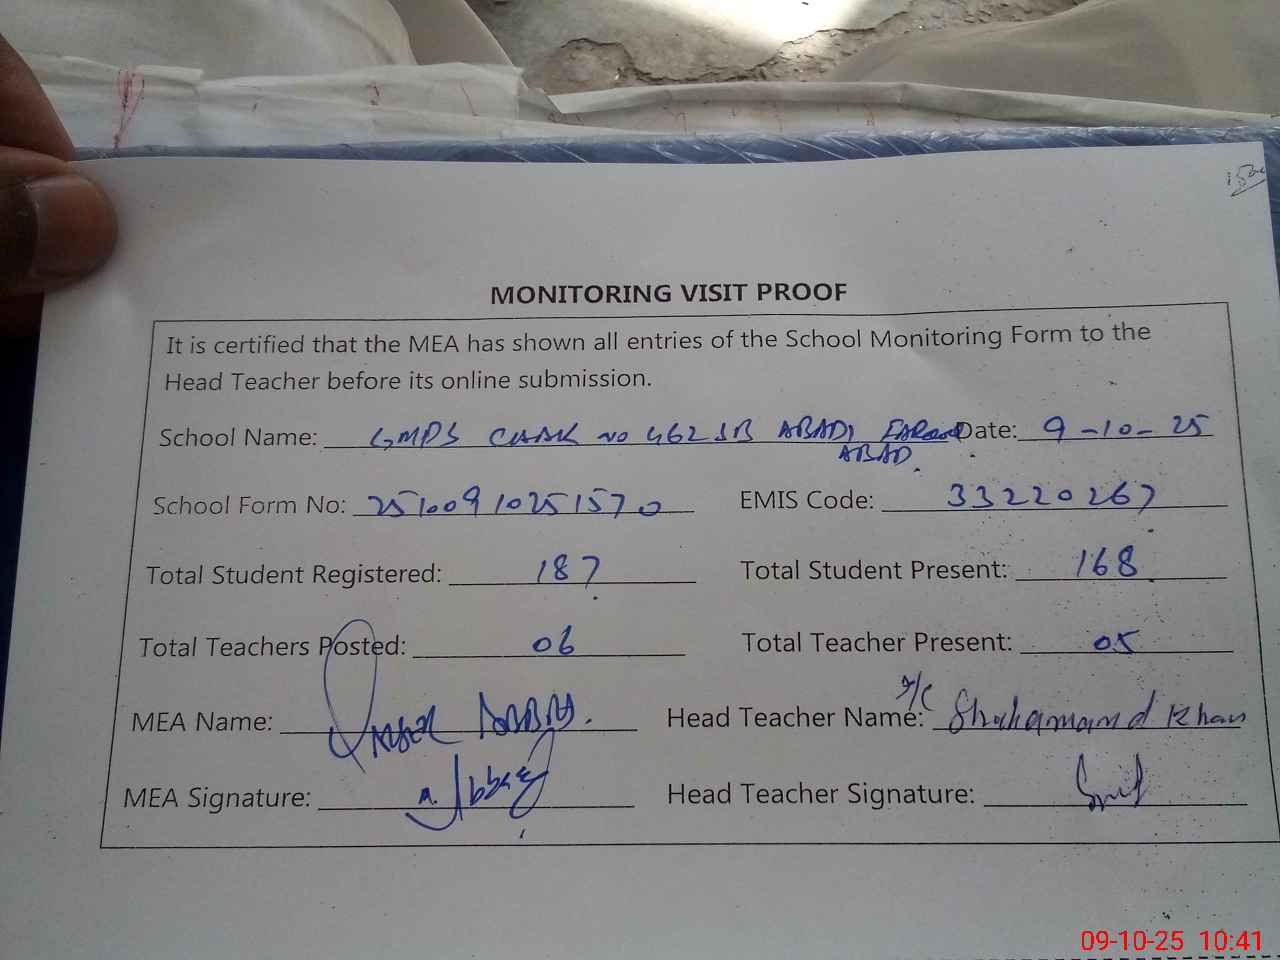 MONITORING VISIT PROOF
It is certified that the MEA has shown all entries of the School Monitoring Form to the
Head Teacher before its online submission.
School Name: GMPS CHAK NO 462 JB ABADI Date: 9-10-25
ABAD.
School Form No: 25100910251570 EMIS Code: 33220267
Total Student Registered: 187 Total Student Present: 168
Total Teachers Posted: 06 Total Teacher Present: 05
I/C
MEA Name: Head Teacher Name: Khan
MEA Signature: Head Teacher Signature:
09-10-25 10:41